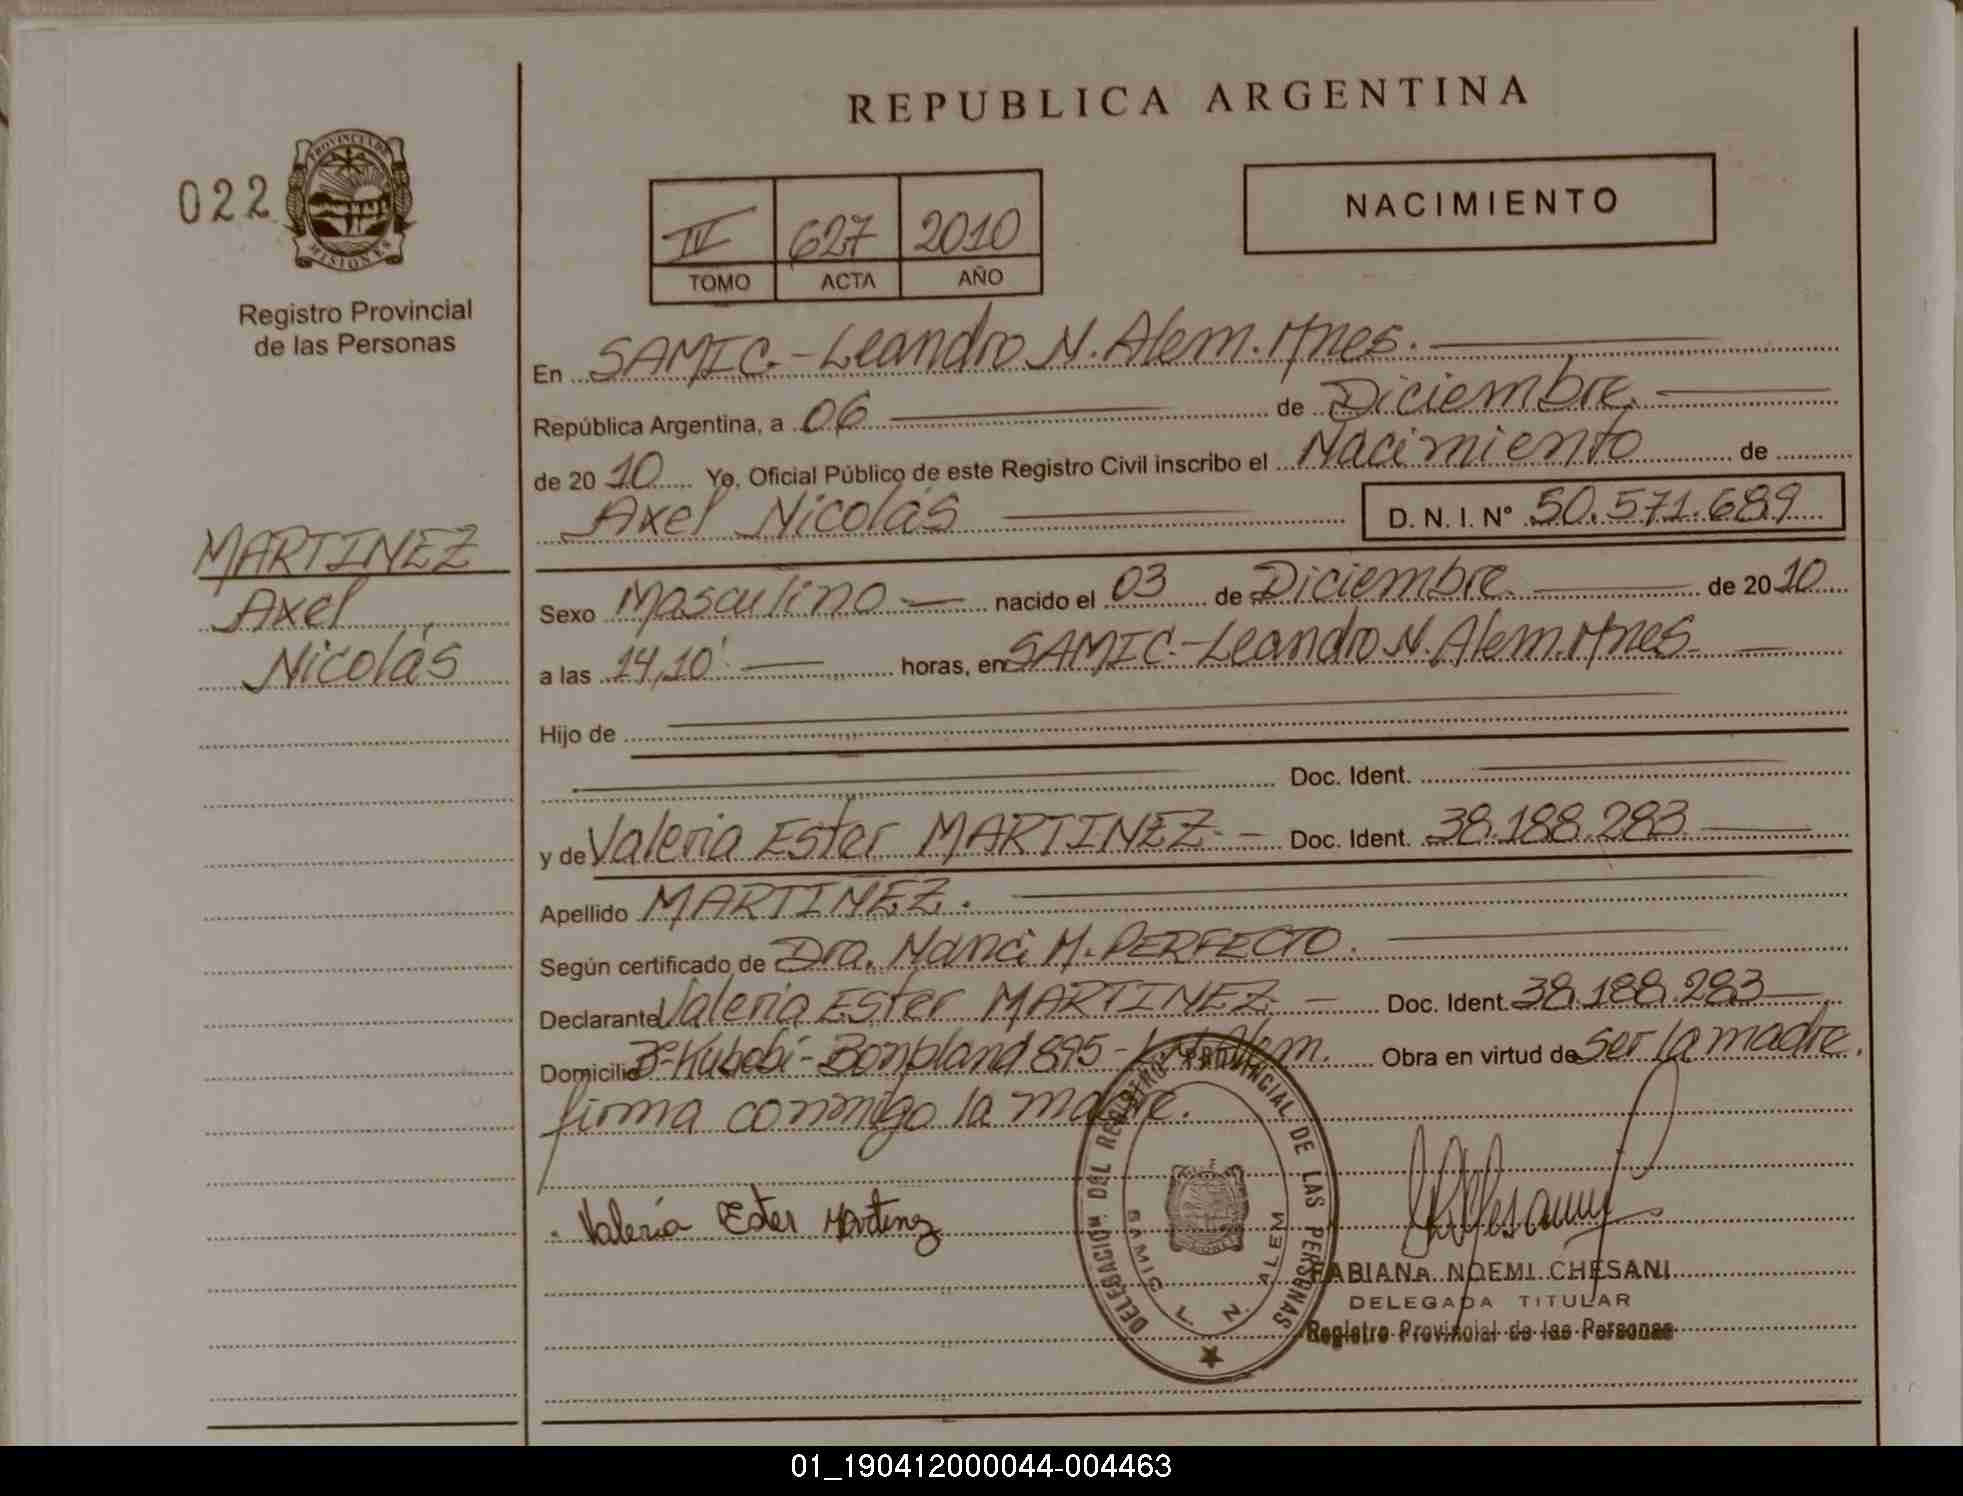 REPUBLICA ARGENTINA
022
PROVINCIA DE MISIONES
Registro Provincial
de las Personas
IV 627 2010
TOMO ACTA AÑO
NACIMIENTO
En SAMIC.-Leandro N. Alem. Mnes.
República Argentina, a 06 de Diciembre.
de 2010 Yo, Oficial Público de este Registro Civil inscribo el Nacimiento de
Axel Nicolás D. N. I. Nº 50.571.689
MARTINEZ
Axel
Nicolás
Sexo Masculino nacido el 03 de Diciembre. de 2010
a las 14,10' horas, en SAMIC.-Leandro N. Alem. Mnes
Hijo de
Doc. Ident.
y de Valeria Ester MARTINEZ- Doc. Ident. 38.188.283
Apellido MARTINEZ.
Según certificado de Dra. Nanci M. PERFECTO.
Declarante Valeria Ester MARTINEZ Doc. Ident. 38.188.283
Domicilio Bº-Kubobi-Bonpland 895- Alem. Obra en virtud de ser la madre.
firma conmigo la madre.
Valeria Ester Martinez
DELEGACION DEL REGISTRO PROVINCIAL DE LAS PERSONAS
SAMIC L. N. ALEM
FABIANA NOEMI CHESANI
DELEGADA TITULAR
Registro Provincial de las Personas
01_190412000044-004463